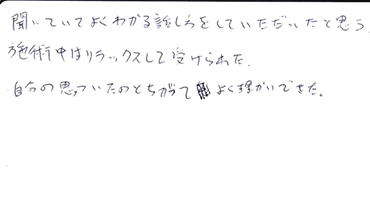 聞いていてよくわかる話し方をしていただいたと思う
施術中はリラックスして受けられた.
自分の思っていたのとちがって よく理かいできた。